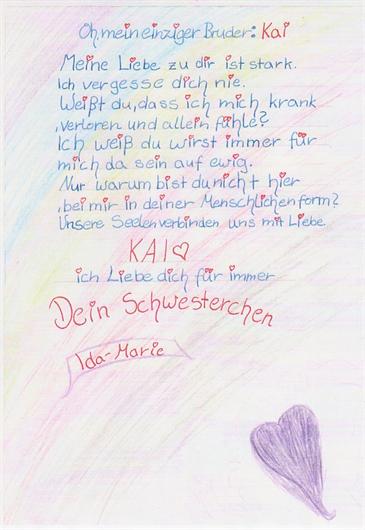 Oh mein einziger Bruder: Kai
Meine Liebe zu dir ist stark.
Ich vergesse dich nie.
Weißt du, dass ich mich krank
, verloren und allein fühle?
Ich weiß du wirst immer für
mich da sein auf ewig.
Nur warum bist du nicht hier
, bei mir in deiner Menschlichen form?
Unsere Seelen verbinden uns mit Liebe
KAI♡
ich Liebe dich für immer
Dein Schwesterchen
Ida-Marie